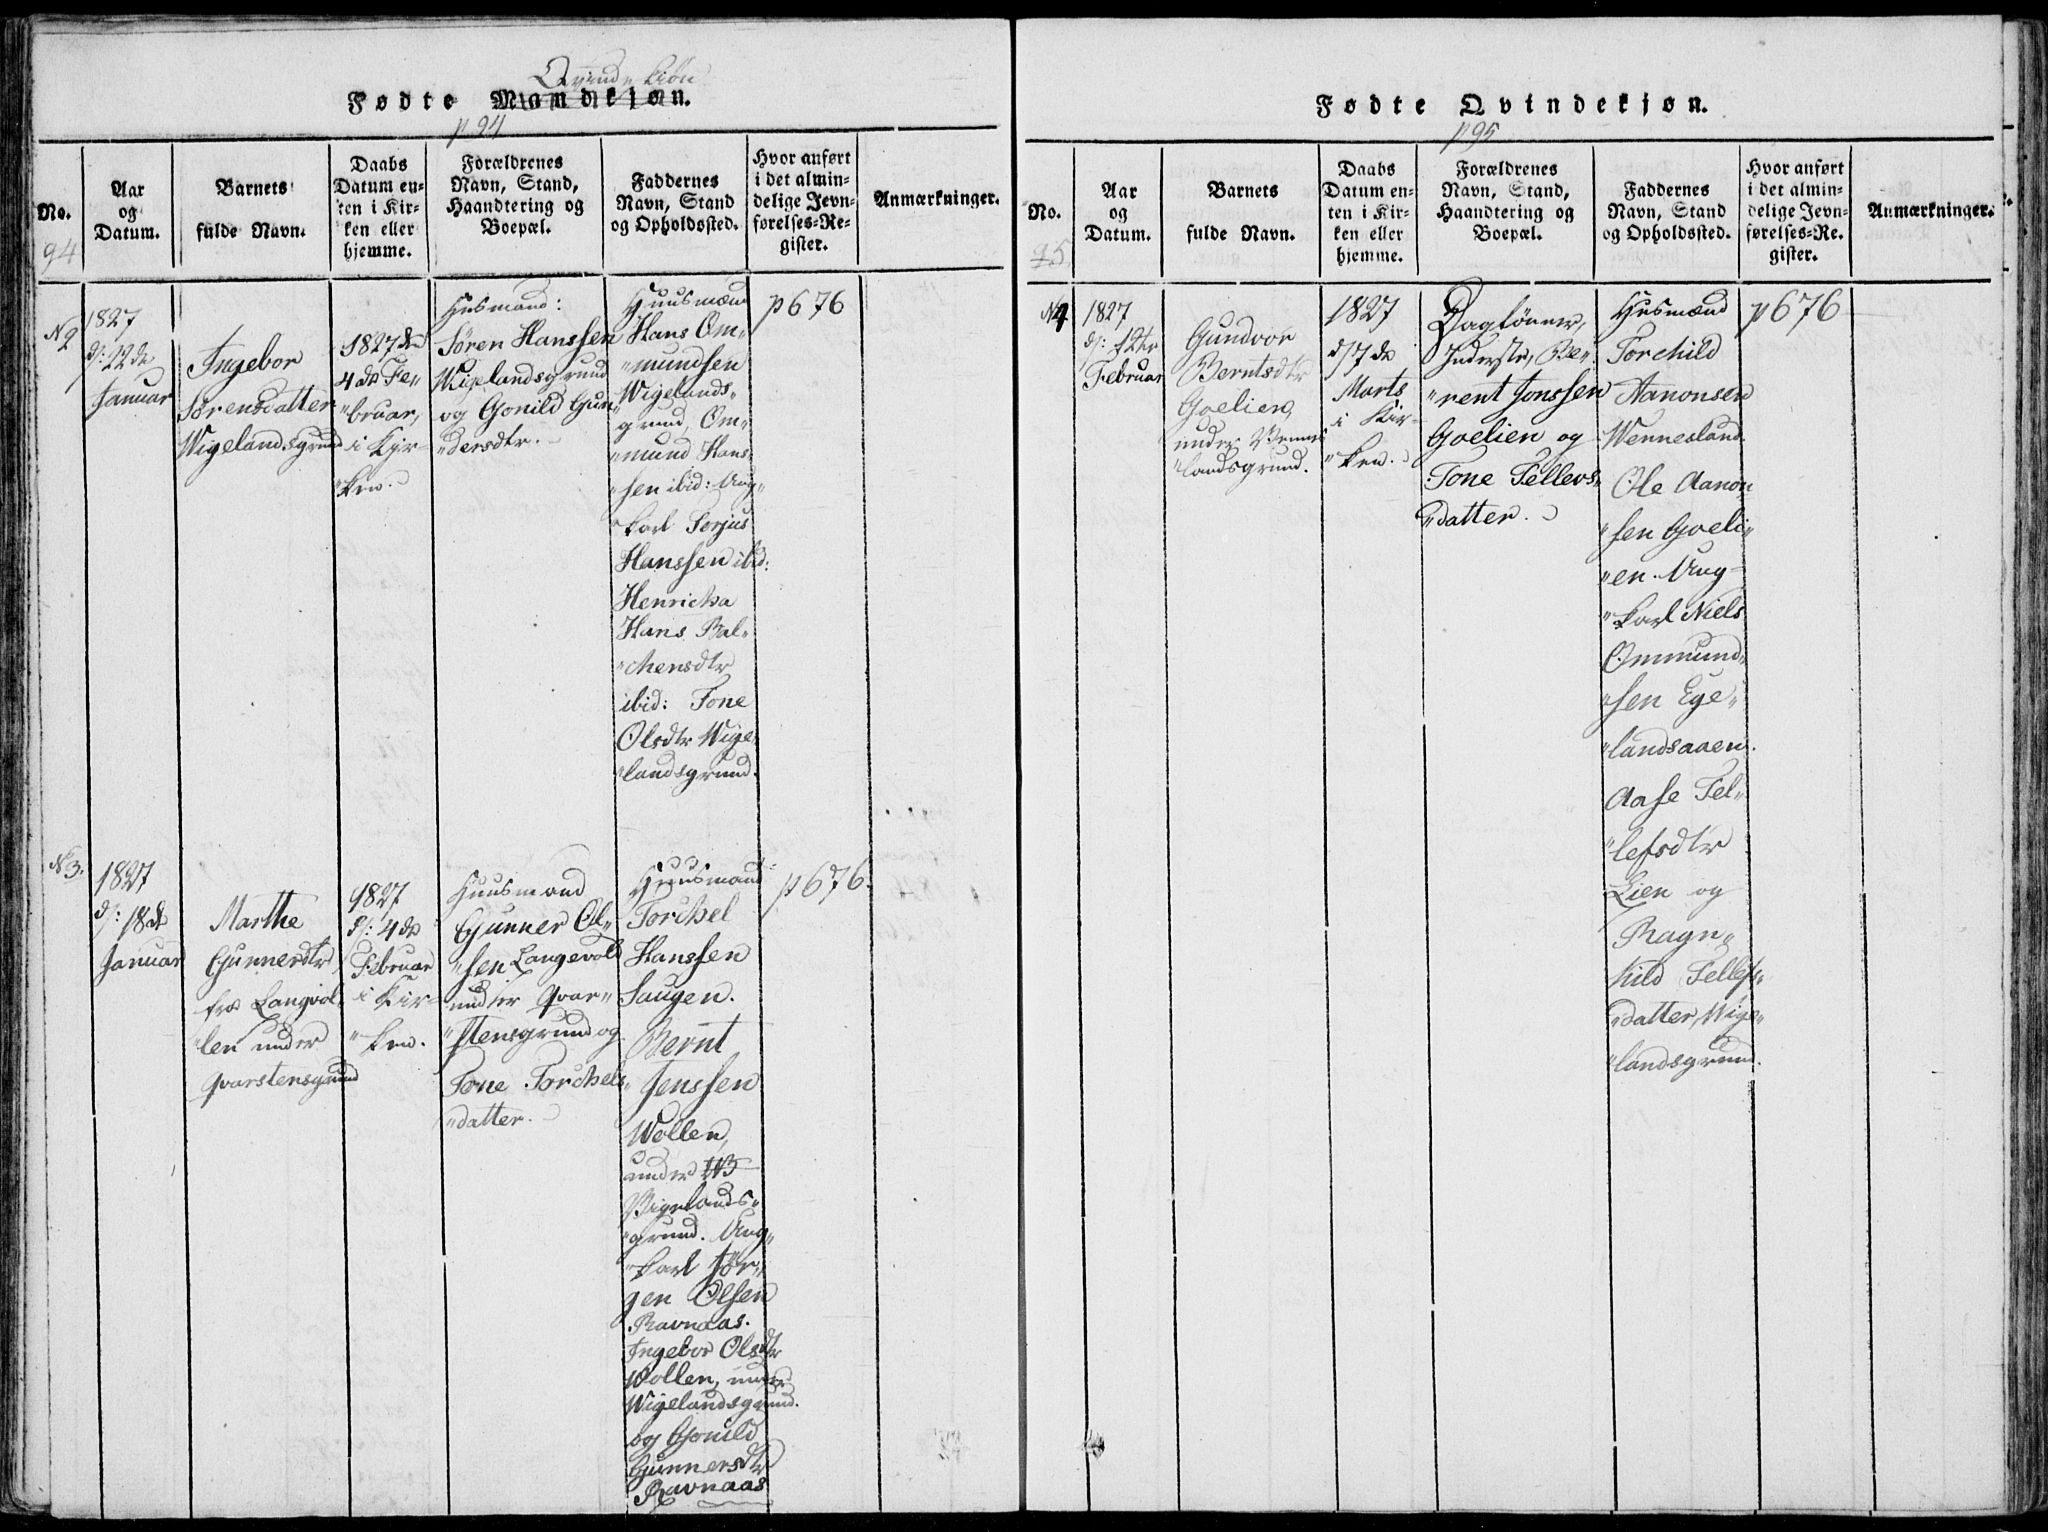 Qvindekiøn
Fødte Mandkjøn.
p 94
No.
94
Aar
og
Datum.
Barnets
fulde Navn.
Daabs
Datum en-
ten i Kir-
ken eller
hjemme.
Forældrenes
Navn, Stand,
Haandtering og
Boepæl.
Faddernes
Navn, Stand
og Opholdssted.
Hvor anført
i det almin-
delige Jevn-
førelses-Re-
gister.
Anmærkninger.
N 2
1827
d: 22de
Januar
Ingebor
Sørensdatter
Wigelandsgrund
1827 den
4de Fe„
„bruar,
i Kyr-
„ken.
Husmand:
Søren Hanssen
Wigelandsgrund
og Gonild Gun„
„dersdtr.
Huusmænd
Hans Om„
„mundsen
Wigelands„
grund, Om„
„mund Hans„
„sen ibid: Ung„
„karl Terjus
Hanssen ibid:
Henricha
Hans Bal„
„chensdtr
ibid: Tone
Olsdtr Wige„
„landsgrund.
p 676
N 3.
1827
d: 18de
Januar
Marthe
Gunnersdtr
fra Langvol„
„len under
Qvarstensgrund
1827
d: 4de
Februar
i Kir-
„ken.
Huusmand
Gunner Ol„
„sen Langevold
under Qvar„
„stensgrund og
Tone Torchels„
„datter.
Huusmand
Torchel
Hanssen
Haugen.
Bernt
Jenssen
Wollen,
under
Vigelands„
„grund. Ung„
„karl Jör„
gen Olsen
Ravnaas.
Ingebor Olsdtr
Wollen, under
Wigelandsgrund.
og Gonild
Gunnersdtr
Ravnaas
p 676.
Fødte Qvindekjøn.
p 95
No.
95
Aar
og
Datum.
Barnets
fulde Navn.
Daabs
Datum en-
ten i Kir-
ken eller
hjemme.
Forældrenes
Navn, Stand,
Haandtering og
Boepæl.
Faddernes
Navn, Stand
og Opholdssted.
Hvor anført
i det almin-
delige Jevn-
førelses-Re-
gister.
Anmærkninger.
N 4
1827
d: 12te
Februar
Gundvor
Berntsdtr
Goelien,
under Vennes„
„landsgrund.
1827
d 7de
Marts
i Kir-
„ken.
Daglönner,
Inderste, Be„
„rent Jonssen
Goelien og
Tone Tellevs„
„datter.
Husmænd
Torchild
Aanonsen
Wennesland.
Ole Aanon„
„sen Goeli„
„en. Ung-
„karl Niels
Ommund„
„sen Ege„
„landsaaen.
Aase Tel„
„lefsdtr
Lien og
Ragn„
hild Tellefs„
„datter, Wige„
„landsgrund.
p 676